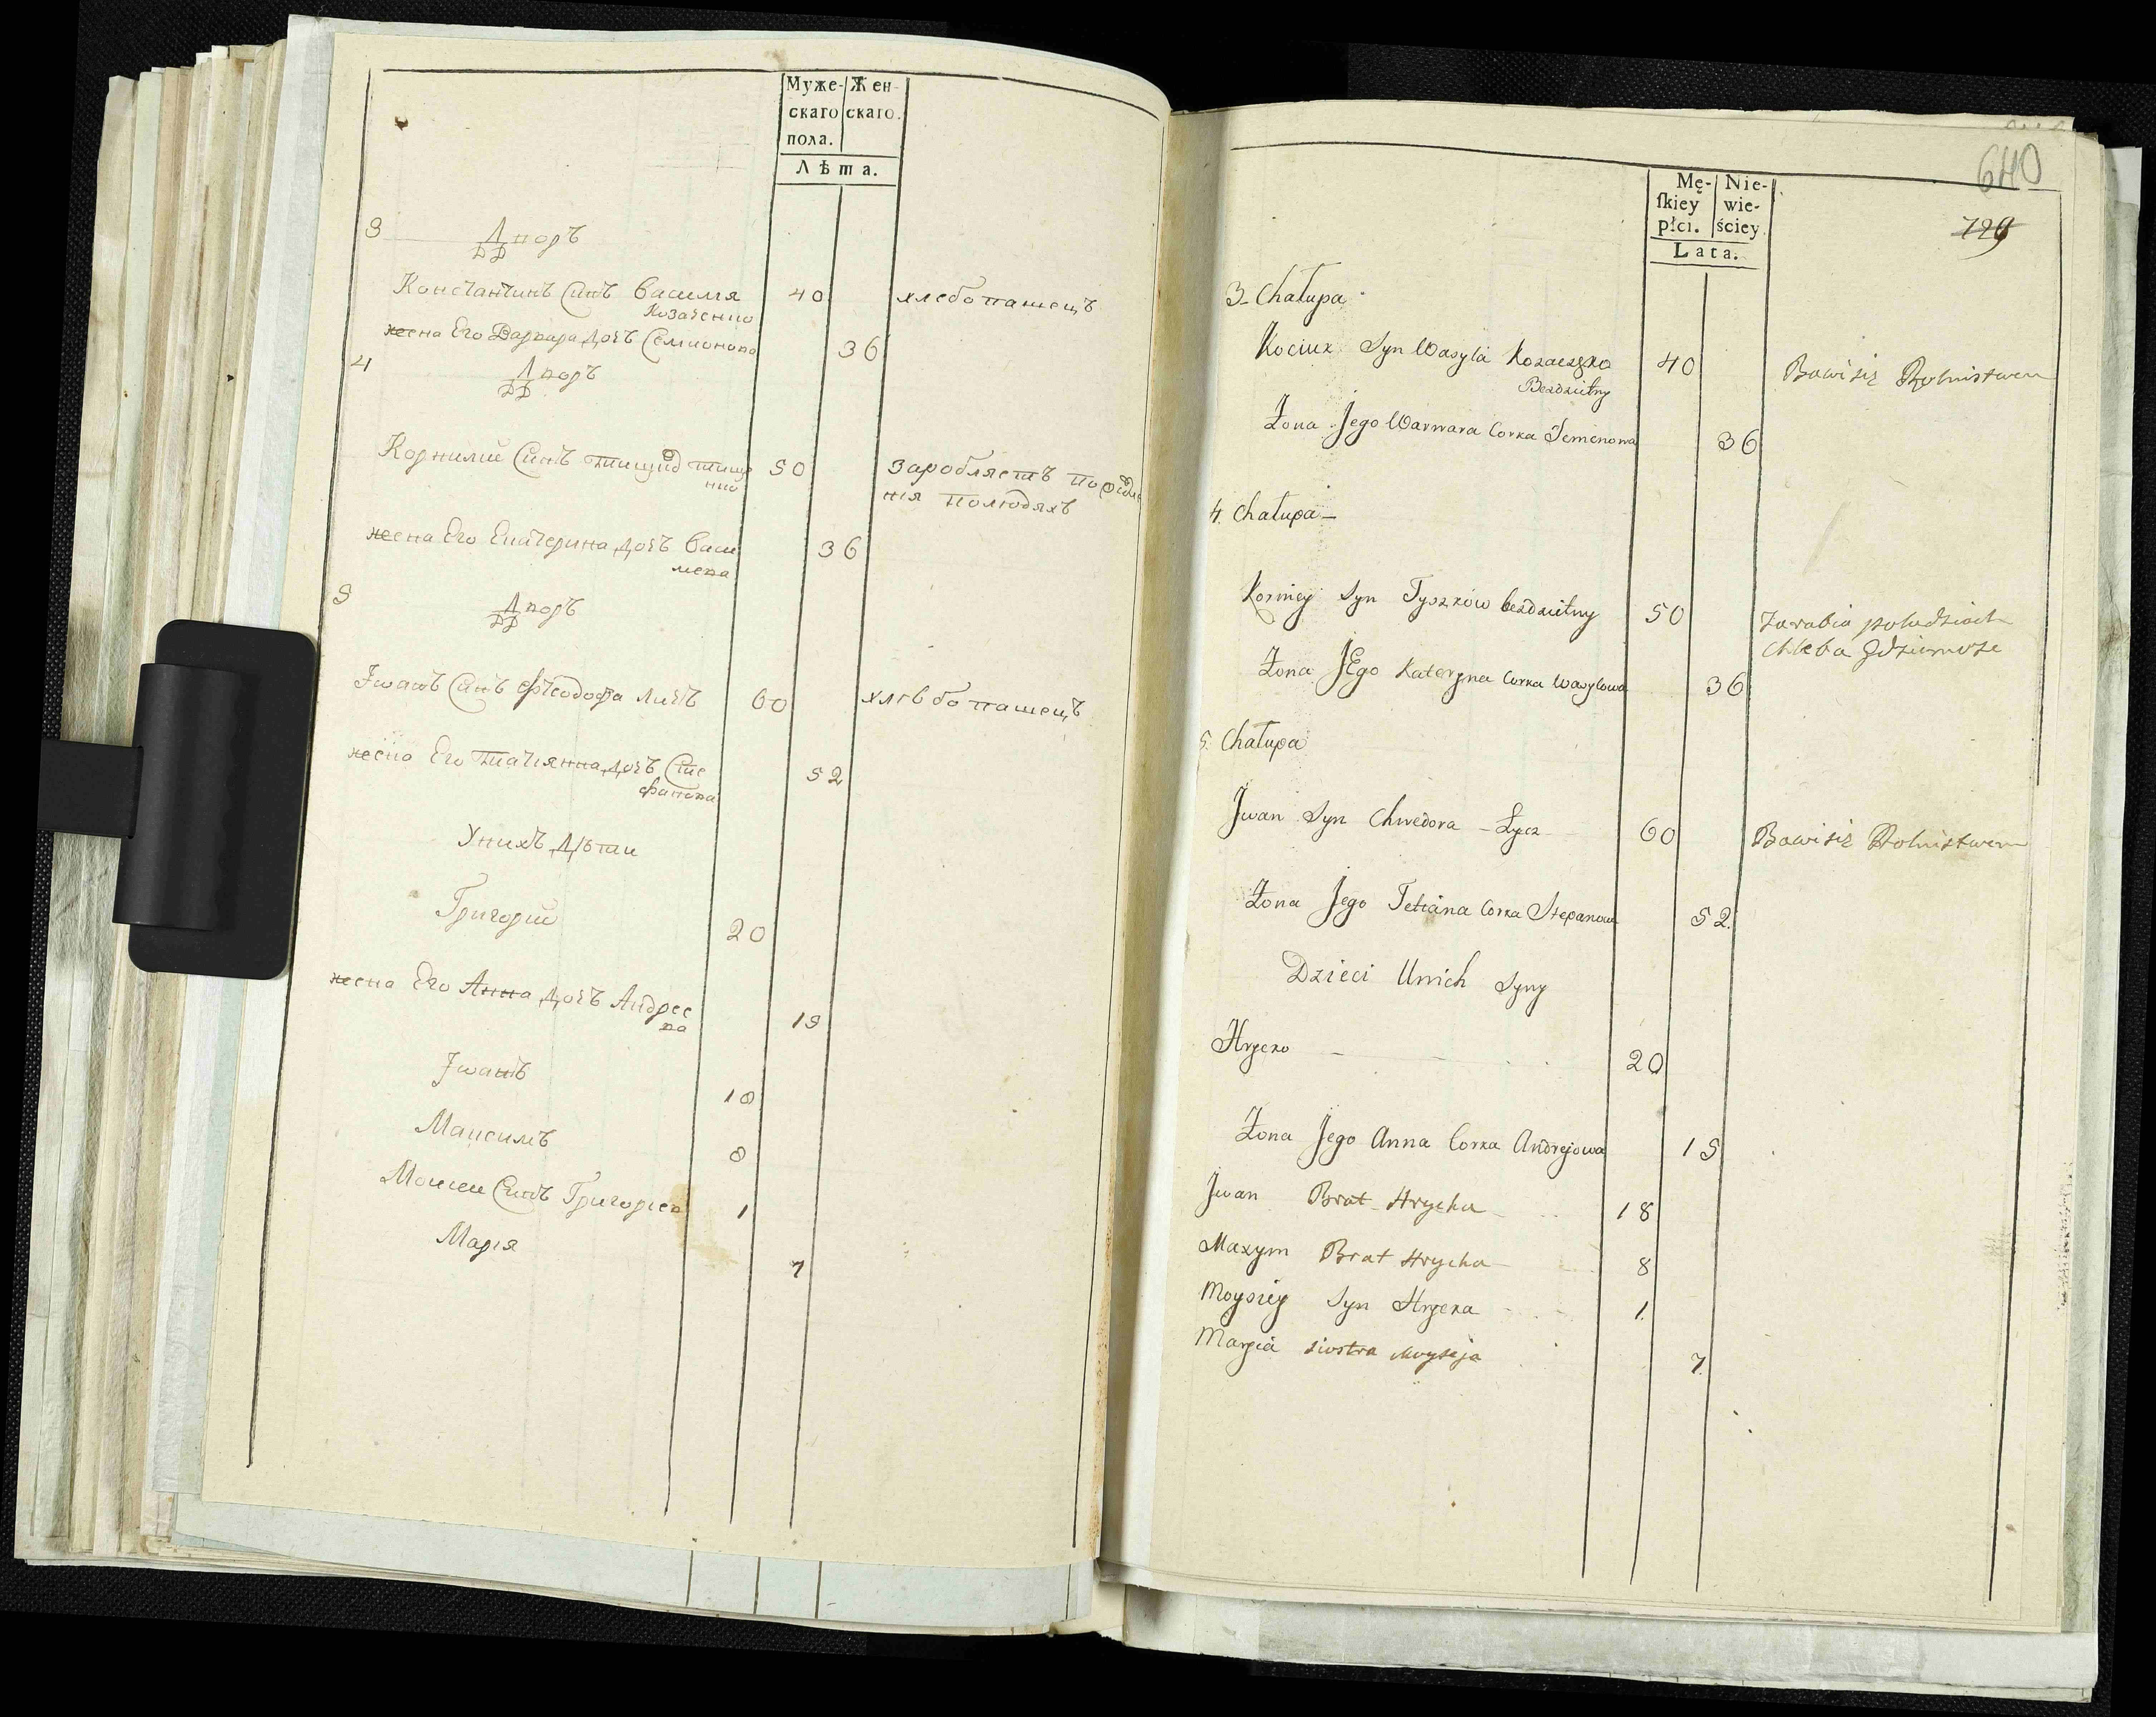 Муже- Жен-
скаго скаго.
пола.
Лѣта.
3 Дворъ
Константинъ Синъ Василя 40 хлебопашецъ
Козаченко
жена Его Варвара дочъ Семионова 36
4 Дворъ
Корнилий Синъ Тишко 50 заробляетъ
полюдяхъ
жена Его Екатерина дочъ Васи 36
лева
5 Дворъ
Іванъ Синъ Феодора Личъ 60 хлѣбопашецъ
жена Его Татіянна дочъ Сте 52
фанова
Унихъ Дѣти
Григорий 20
жена Его Анна дочъ Андрее 19
ва
Іванъ 18
Максимъ 8
Моисеи Синъ Григориев 1
Марія 7
640
729
Mę- Nie-
ſkiey wie-
płci. ściey.
Lata.
3 Chałupa
Kociuk Syn Wasyla Kozaczko 40 Bawi się Rolnistwem
Bezdzietny
Żona Jego Warwara Corka Semenowa 36
4. Chałupa
Korniey Syn Tyszków bezdzietny 50 Zarabia po ludziach
chleba gdzie może
Żona JEgo Kateryna Corka Wasylowa 36
5. Chałupa
Jwan Syn Chwedora Łycz 60 Bawi się Rolnistwem
Żona Jego Tetiana Corka Stepanowa 52.
Dzieci Unich Syny
Hrycko 20
Żona Jego Anna Corka Andrejowa 19
Jwan Brat Hrycka 18
Maxym Brat Hrycka 8
Moysiey Syn Hrycka 1.
Marya siostra Moyseja 7.